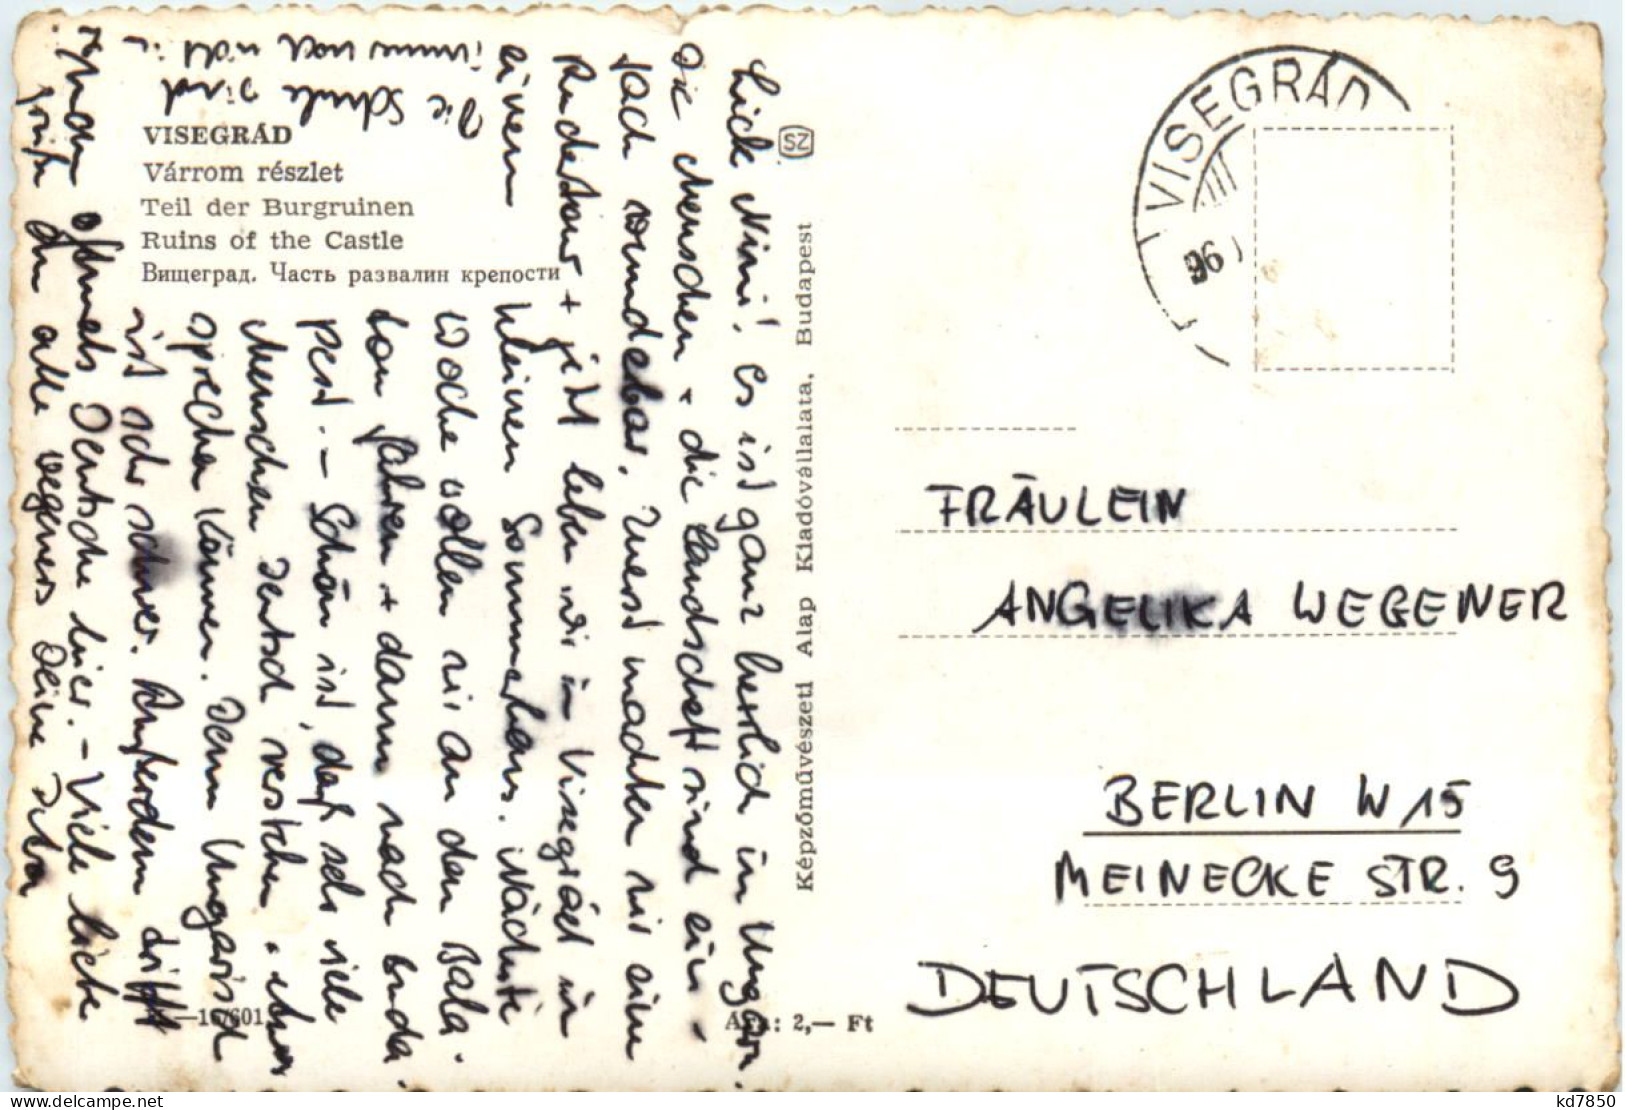 VISEGRÁD
Várrom részlet
Teil der Burgruinen
Ruins of the Castle
Вишеград. Часть развалин крепости
Nini! Es ist ganz herrlich in Ungarn.
Die Menschen + die Landschaft sind ein-
fach wunderbar. Zuerst machten wir eine
Rundetour + jetzt leben wir in Visegrád in
einem kleinen Sommerhaus. Nächste
Woche wollen wir an den Bala-
ton fahren + dann nach Buda-
pest. – Schön ist, daß sehr viele
Menschen Deutsch verstehen +
sprechen können. Denn Ungarisch
ist sehr schwer. Außerdem trifft
man oftmals Deutsche hier. – Viele liebe
Grüße an alle Wegeners Deine
Die Schule wird
immer noch nicht
Képzőművészeti Alap Kiadóvállalata, Budapest
SZ
2,— Ft
VISEGRÁD
FRÄULEIN
ANGELIKA WEGENER
BERLIN W 15
MEINECKE STR. 9
DEUTSCHLAND
kd7850